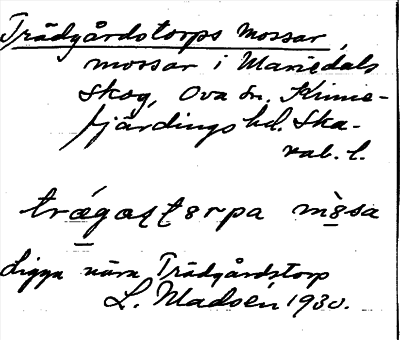 Trädgårdstorps Mossar,
mossar i Mariedals
skog, Ova sn. Kinne-
fjärdings hd. Ska-
rab. l.
trægaʂʈɵrpa mɵ̀sa
Ligga nära Trädgårdstorp
L. Madsén 1930.